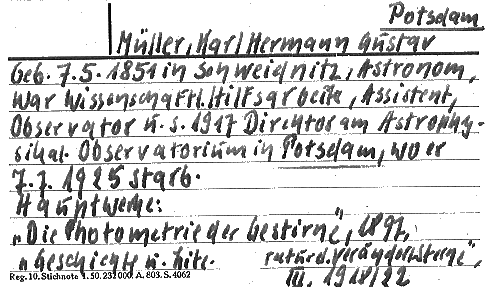 Potsdam
Müller, Karl Hermann Gustav
Geb. 7.5.1851 in Schweidnitz, Astronom,
war wissenschaftl. Hilfsarbeite, Assistent,
Observator u. s. 1917 Direktor am Astrophy-
sikal. Observatorium in Potsdam, wo er
7.7.1925 starb.
Hauptwerke:
„Die Photometrie der Gestirne", 1897,
„Geschichte u. Lite. ratur d. Veränd. Sterne",
Reg. 10. Stichnote 1. 50. 232000. A. 803. S. 4062
III, 1918/22